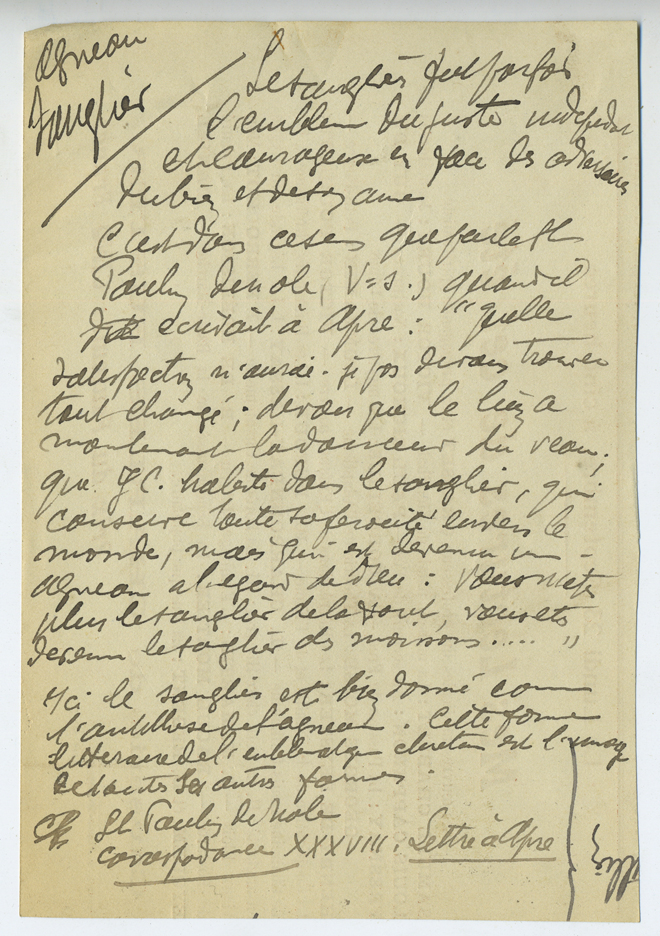 Agneau
Sanglier
Le sanglier fut parfois
l'emblème du juste indépendant
et courageux en face des adversaires
du bien et de son âme
C'est dans ce sens que parle St
Paulin de Nole (V=s.) quand il
écrivait à Apre : "Quelle
satisfaction n'aurai-je pas de vous trouver
tout changé ; de voir que le lion a
maintenant la douceur du veau,
que J C. habite dans le sanglier, qui
conserve toute sa férocité envers le
monde, mais qui est devenu un
agneau à l'égard de Dieu : vous n'êtes
plus le sanglier de la forêt, vous êtes
devenu le sanglier des moissons .... "
Ici le sanglier est bien donné comme
l'antithèse de l'agneau. Cette forme
littéraire de l'emblématique chrétien est l'image
de toutes les autres formes.
St Paulin de Nole
Correspondance XXXVIII. Lettre à Apre